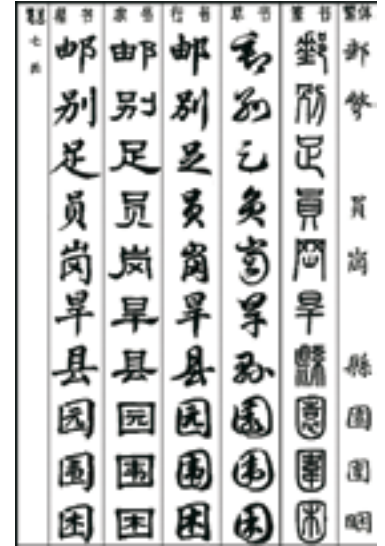 楷书 隶书 行书 草书 篆书 繁体
七画
邮 邮 邮 邮 郵 郵
别 别 别 别 别 彆
足 足 足 足 足
员 员 员 员 員 員
岗 岗 岗 岗 岡 崗
旱 旱 旱 旱 旱
县 县 县 县 縣 縣
园 园 园 园 園 園
围 围 围 围 圍 圍
困 困 困 困 困 睏